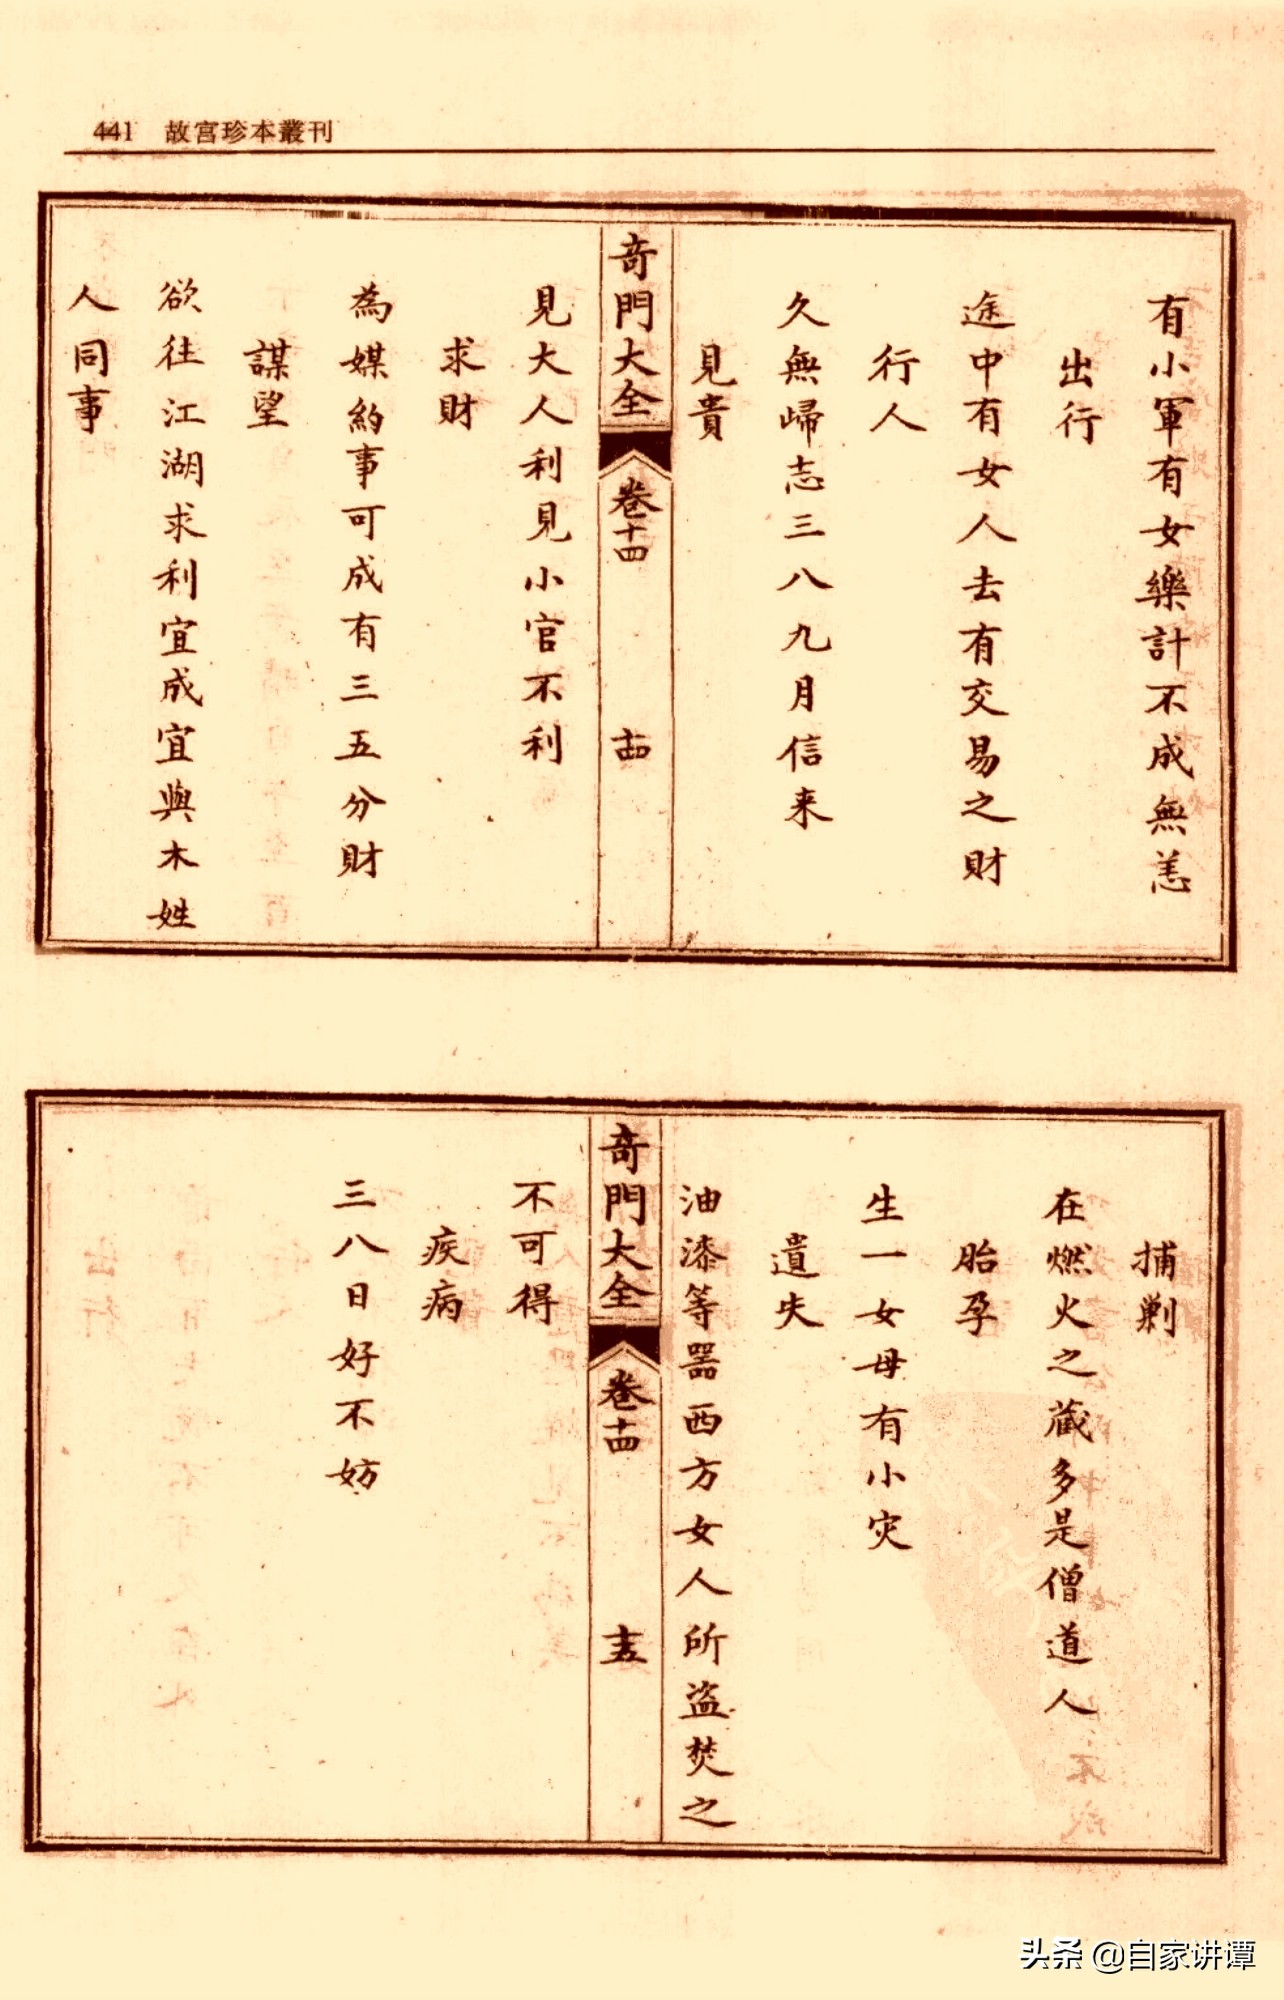 441 故宮珍本叢刊
有小軍有女樂計不成無恙
出行
途中有女人去有交易之財
行人
久無歸志三八九月信来
見貴
奇門大全 卷十四 十四
見大人利見小官不利
求財
為媒約事可成有三五分財
謀望
欲往江湖求利宜成宜與木姓
人同事
捕剿
在燃火之藏多是僧道人
胎孕
生一女母有小灾
遺失
油漆等器西方女人所盗焚之
奇門大全 卷十四 十五
不可得
疾病
三八日好不妨
头条 @自家讲谭